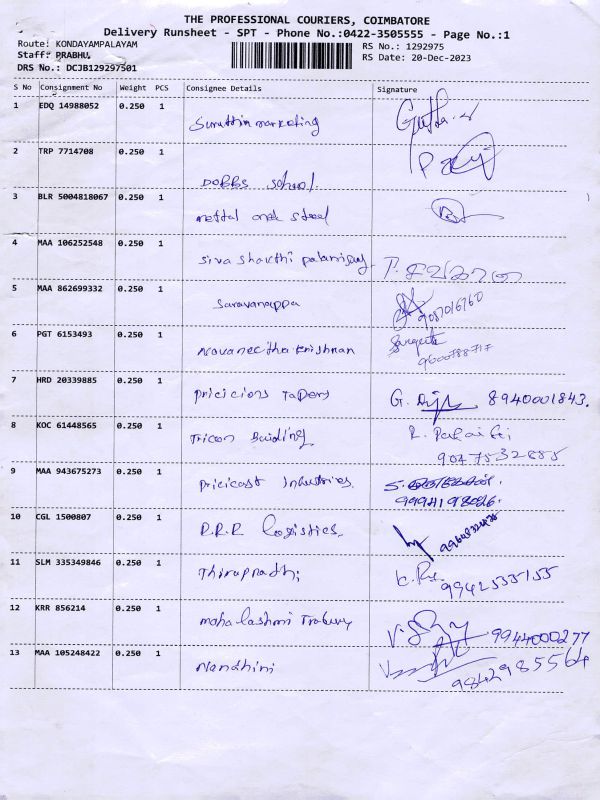 THE PROFESSIONAL COURIERS, COIMBATORE
Delivery Runsheet - SPT - Phone No.:0422-3505555 - Page No.:1
Route: KONDAYAMPALAYAM
Staff: PRABHU,
DRS No.: DCJB129297501
RS No.: 1292975
RS Date: 20-Dec-2023
S No Consignment No Weight PCS Consignee Details Signature
1 EDQ 14988052 0.250 1
marketing
2 TRP 7714708 0.250 1
DOBBS school.
3 BLR 5004818067 0.250 1
mettal and steel
4 MAA 106252548 0.250 1
Siva shakthi
5 MAA 862699332 0.250 1
Saravanappa 9087016760
6 PGT 6153493 0.250 1
Navaneetha krishnan Sangeetha
9600788717
7 HRD 20339885 0.250 1
Pricicions Tapers G. 8940001843.
8 KOC 61448565 0.250 1
Tricon Building R.
9047532885
9 MAA 943675273 0.250 1
Pricicast Industries.
9994198026.
10 CGL 1500807 0.250 1
R.R.R Logistics.
11 SLM 335349846 0.250 1
9942535155
12 KRR 856214 0.250 1
maha lashmi 9944000277
13 MAA 105248422 0.250 1
Nandhini 9842985564